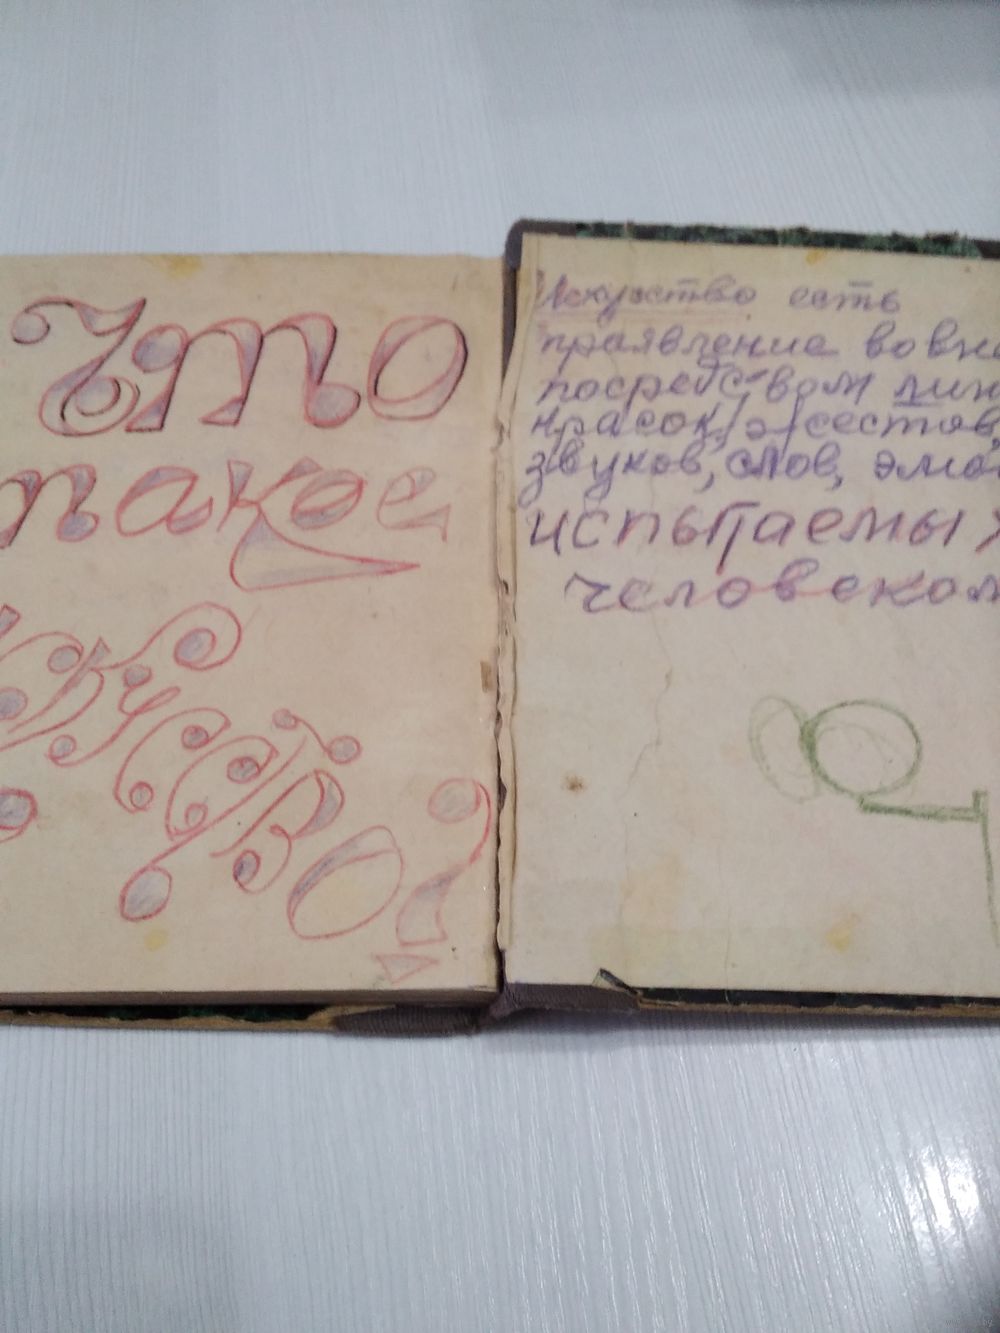 Что
такое
искусство?
Искусство есть
праявление вовне
посредством лин
красок, жестов,
звуков, слов, эмо
испытаемых
человеком